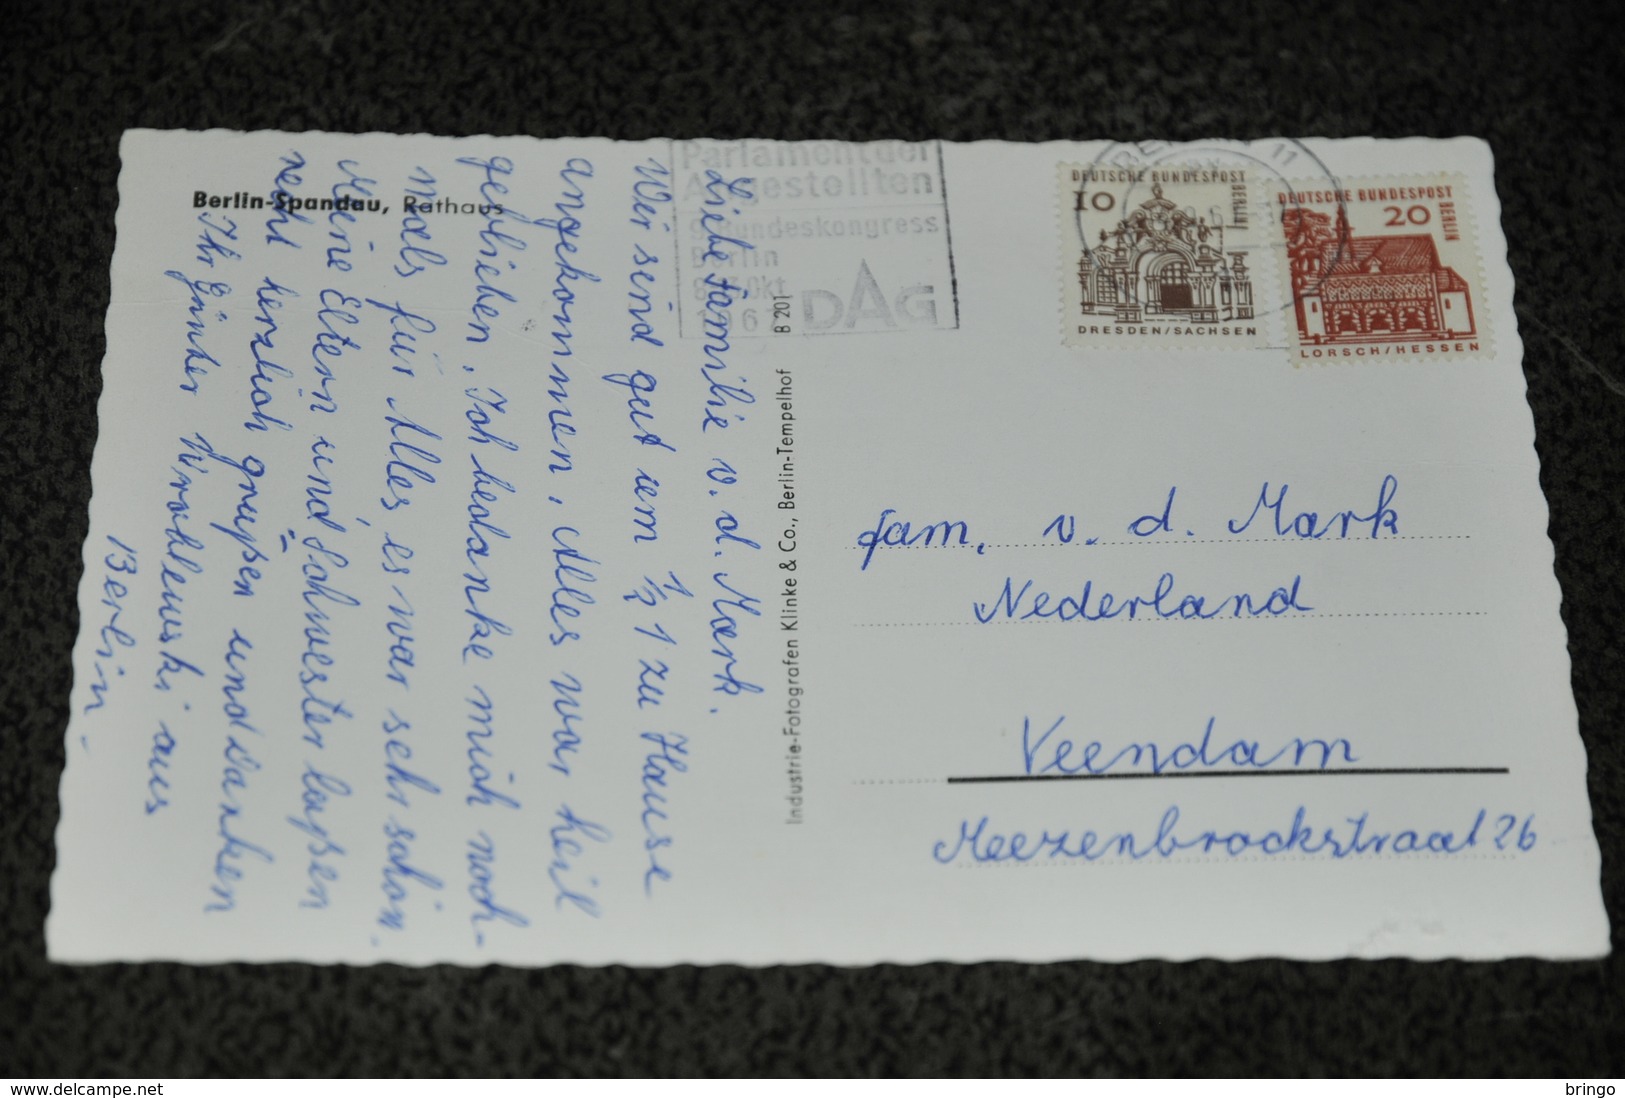 Berlin-Spandau, Rathaus
Liebe Familie v. d. Mark.
Wir sind gut um ½ 1 zu Hause
angekommen, Alles war heil
geblieben. Ich bedanke mich noch-
mals für Alles, es war sehr schön.
Meine Eltern und Schwester laßen
recht herzlich grüßen und danken
Ihr Günter Wroblewski aus
Berlin -
Parlament der
Angestellten
9. Bundeskongress
Berlin
Okt
DAG
B 201
Industrie-Fotografen Klinke & Co., Berlin-Tempelhof
BERLIN 11
DEUTSCHE BUNDESPOST
BERLIN
10
DRESDEN/SACHSEN
DEUTSCHE BUNDESPOST
BERLIN
20
LORSCH/HESSEN
fam. v. d. Mark
Nederland
Veendam
Meezenbrockstraat 26
www.delcampe.net
bringo